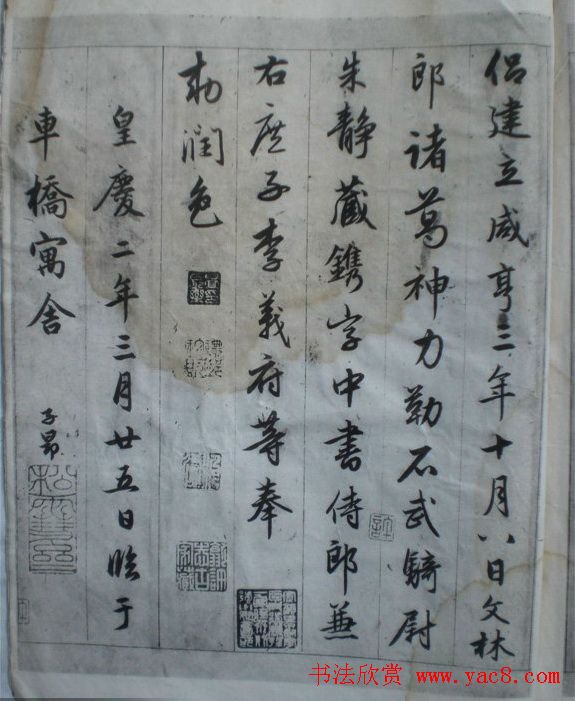 侣建立咸亨三年十月八日文林
郎諸葛神力勒石武騎尉
朱静藏鐫字中書侍郎兼
右庶子李義府等奉
勑潤色
皇慶二年三月廿五日臨于
車橋寓舍
子昂
松雪齋
书法欣赏 www.yac8.com